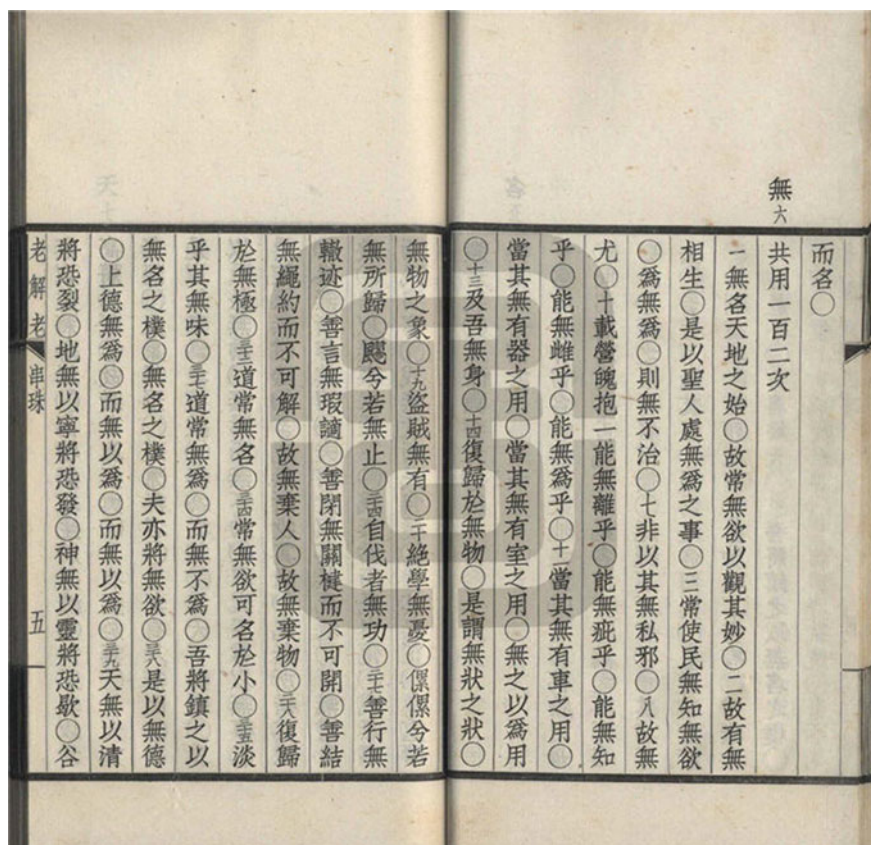 無六
而名〇
共用一百二次
一無名天地之始〇故常無欲以觀其妙〇二故有無
相生〇是以聖人處無爲之事〇三常使民無知無欲
〇爲無爲〇則無不治〇七非以其無私邪〇八故無
尤〇十載營魄抱一能無離乎〇能無疵乎〇能無知
乎〇能無雌乎〇能無爲乎〇十一當其無有車之用〇
當其無有器之用〇當其無有室之用〇無之以爲用
〇十三及吾無身〇十四復歸於無物〇是謂無狀之狀〇
無物之象〇十九盜賊無有〇二十絕學無憂〇儽儽兮若
無所歸〇飂兮若無止〇二十四自伐者無功〇二十七善行無
轍迹〇善言無瑕讁〇善閉無關楗而不可開〇善結
無繩約而不可解〇故無棄人〇故無棄物〇二十八復歸
於無極〇三十二道常無名〇三十四常無欲可名於小〇三十五淡
乎其無味〇三十七道常無爲〇而無不爲〇吾將鎮之以
無名之樸〇無名之樸〇夫亦將無欲〇三十八是以無德
〇上德無爲〇而無以爲〇而無以爲〇三十九天無以清
將恐裂〇地無以寧將恐發〇神無以靈將恐歇〇谷
老解老
串珠
五